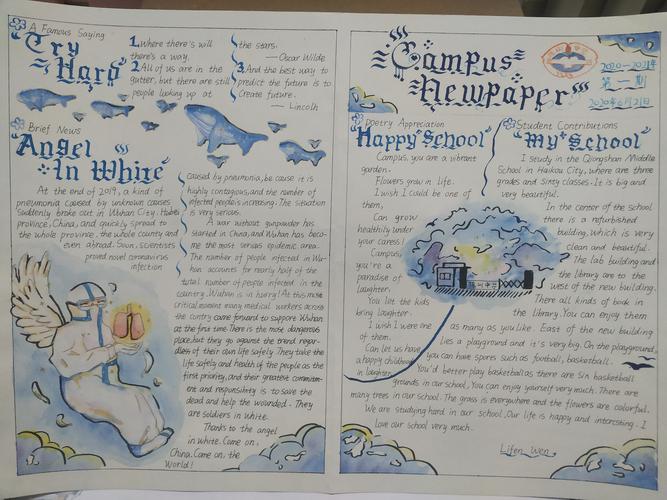 A Famous Saying
"Try
Hard"
1. Where there's will
there's a way.
2. All of us are in the
gutter, but there are still
people looking up at
the stars.
— Oscar Wilde
3. And the best way to
predict the future is to
Create future.
— Lincoln
Brief News
"Angel
In White"
At the end of 2019, a kind of
pneumonia caused by unknown causes
suddenly broke out in Wuhan City, Hubei
province, China, and quickly spread to
the whole province, the whole country and
even abroad. Soon, scientists
proved novel coronavirus
infection
caused by pneumonia, be cause it is
highly contagious, and the number of
infected people is increasing. The situation
is very serious.
A war without gunpowder has
started in China, and Wuhan has beco-
me the most serious epidemic area.
The number of people infected in Wu-
han accounts for nearly half of the
total number of people infected in the
country. Wuhan is in hurry! At this most
critical moment many medical workers across
the contry came forward to support Wuhan
at the first time. There is the most dangerous
place, but they go against the trend regar-
dless of their own life safely. They take the
life safely and health of the people as the
first priority, and their greatest commitm-
ent and responsihity is to save the
dead and help the wounded. They
are soldiers in white.
Thanks to the angel
in white. Come on,
China. Come on, the
World!
"Campus
Newpaper"
2020-2021年
第一期
2020年6月21日
Poetry Appreciation
"Happy School"
Campus, you are a vibrant
garden.
Flowers grow in life.
I wish I could be one of
them,
Can grow
healthily under
your caress!
Campus,
you're a
paradise of
laughter.
You let the kids
bring laughter.
I wish I were one
of them.
Can let us have
a happy childhood
in laughter.
Student Contributions
"My School"
I study in the Qiongshan Middle
School in Haikou City, where are three
grades and sinty classes. It is big and
very beautiful.
In the center of the school
there is a refurbished
building, which is very
clean and beautiful.
The lab building and
the library are to the
west of the new building.
There all kinds of book in
the library. You can enjoy them
as many as you like. East of the new building
lies a playground and it's very big. On the playground,
you can have spores such as football, basketball.
You'd better play basketball as there are six basketball
grounds in our school. You can enjoy yourself very much. There are
many trees in our school. The grass is everywhere and the flowers are colorful.
We are studying hard in our school. Our life is happy and interesting. I
love our school very much.
Lifen Wen